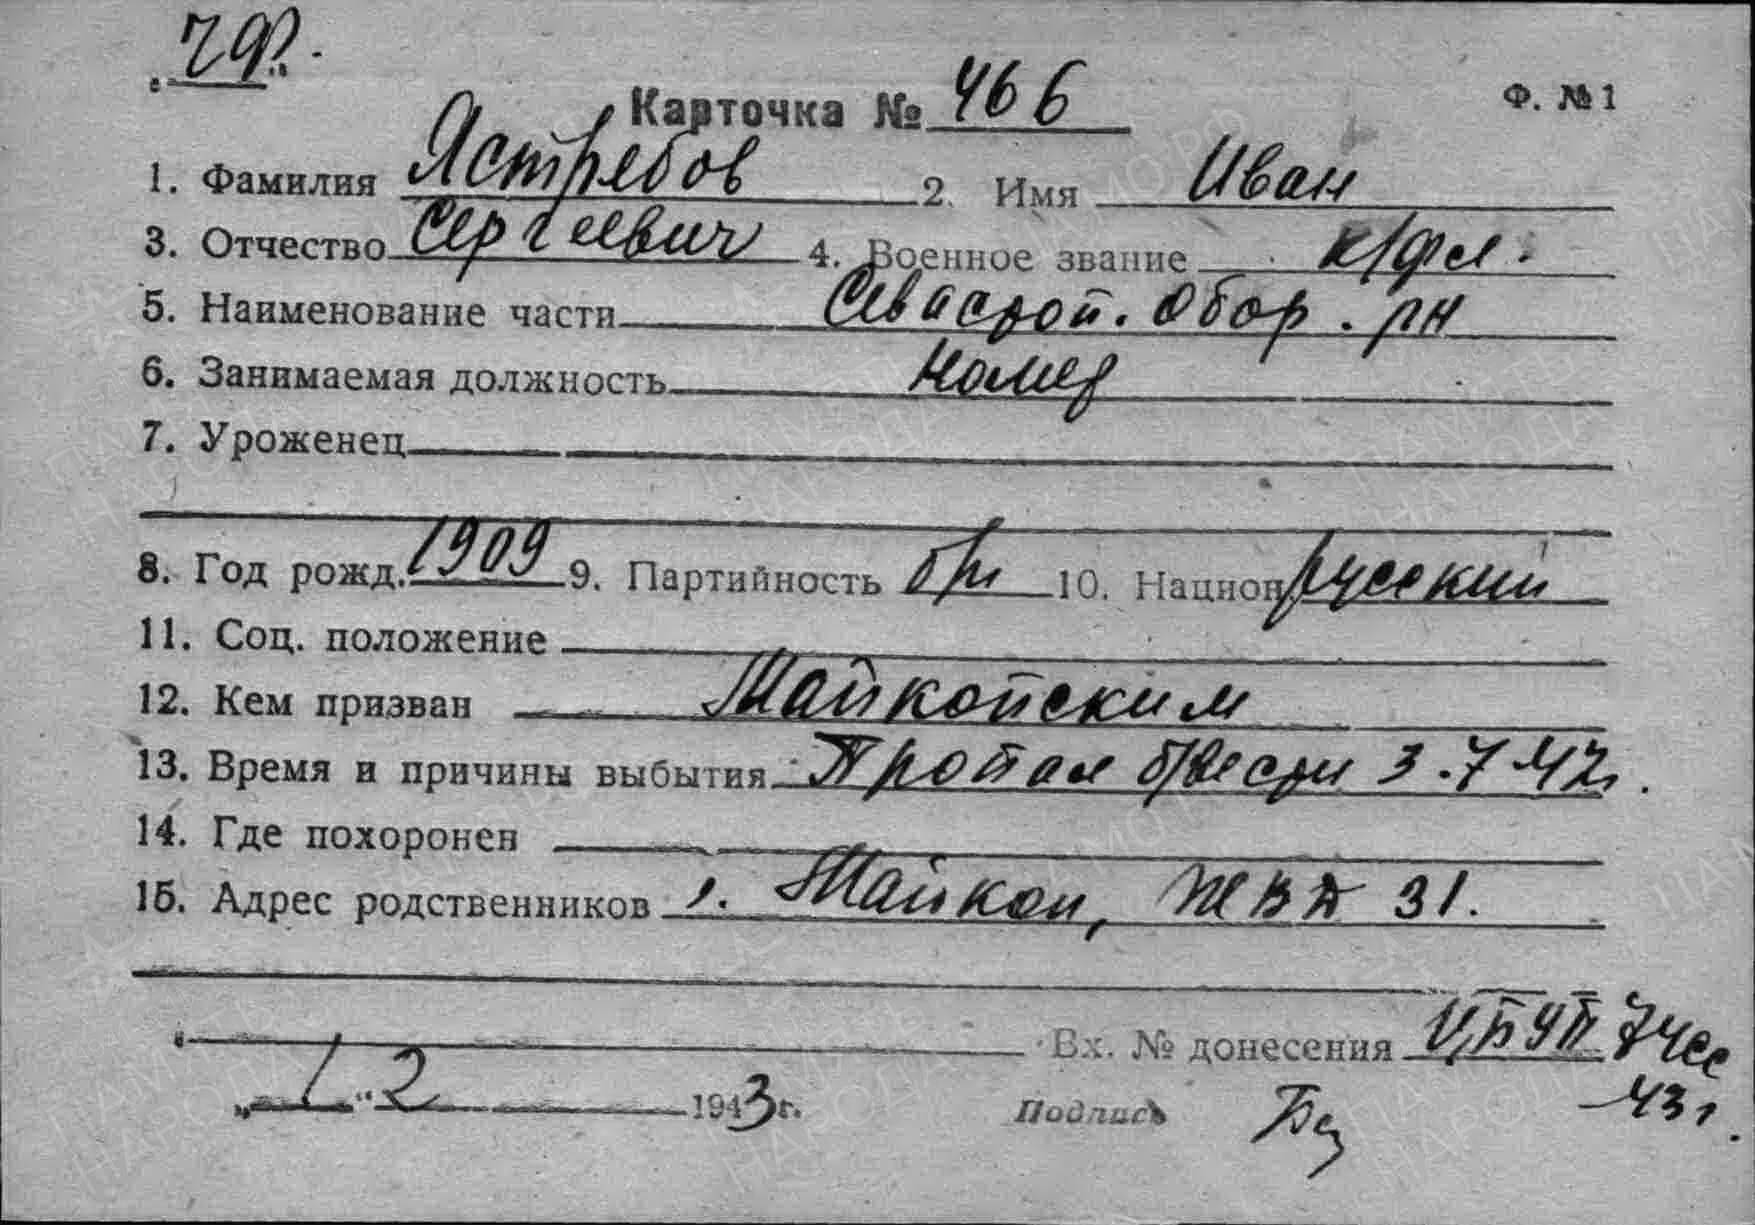 ЧФ.
Карточка № 466
Ф. № 1
1. Фамилия Ястребов 2. Имя Иван
3. Отчество Сергеевич 4. Военное звание к/фл.
5. Наименование части Севастоп. обор. рн
6. Занимаемая должность
7. Уроженец
8. Год рожд. 1909 9. Партийность б/п 10. Национ. русский
11. Соц. положение
12. Кем призван Майкопским
13. Время и причины выбытия Пропал б/вести 3.7.42г.
14. Где похоронен
15. Адрес родственников г. Майкоп, 31.
Вх. № донесения
43г.
„1“ 2 1943 г. Подпись